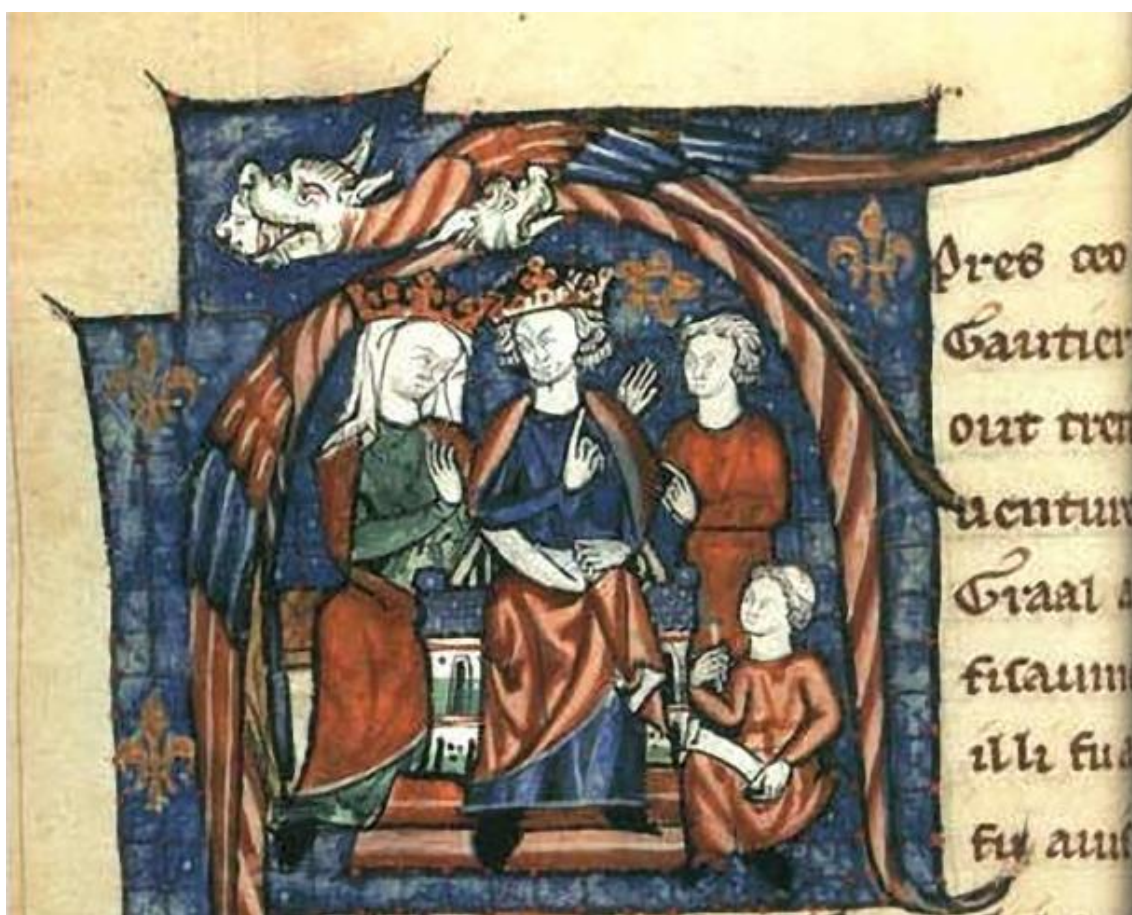 Apres ceo
Gautier
out tre
uentur
Graal a
fisaum
illi fu
fu auis